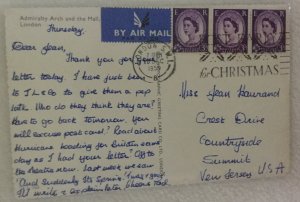 Admiralty Arch and the Mall,
London
BY AIR MAIL
Thursday,
Dear Jean,
Thank you for your
letter today. I have just been
to J L & Co to give them a pep
talk. Who do they think they are?
Have to go back tomorrow. You
will excuse post card! Road about
Hurricane heading for Boston same
day as I had your letter! Off to
the theatre now. Last week we saw
"And Suddenly Its Spring"
I'll write & explain later.
LONDON S.W.1
CHRISTMAS
Miss Jean
Crest Drive
Countryside
Summit
New Jersey USA